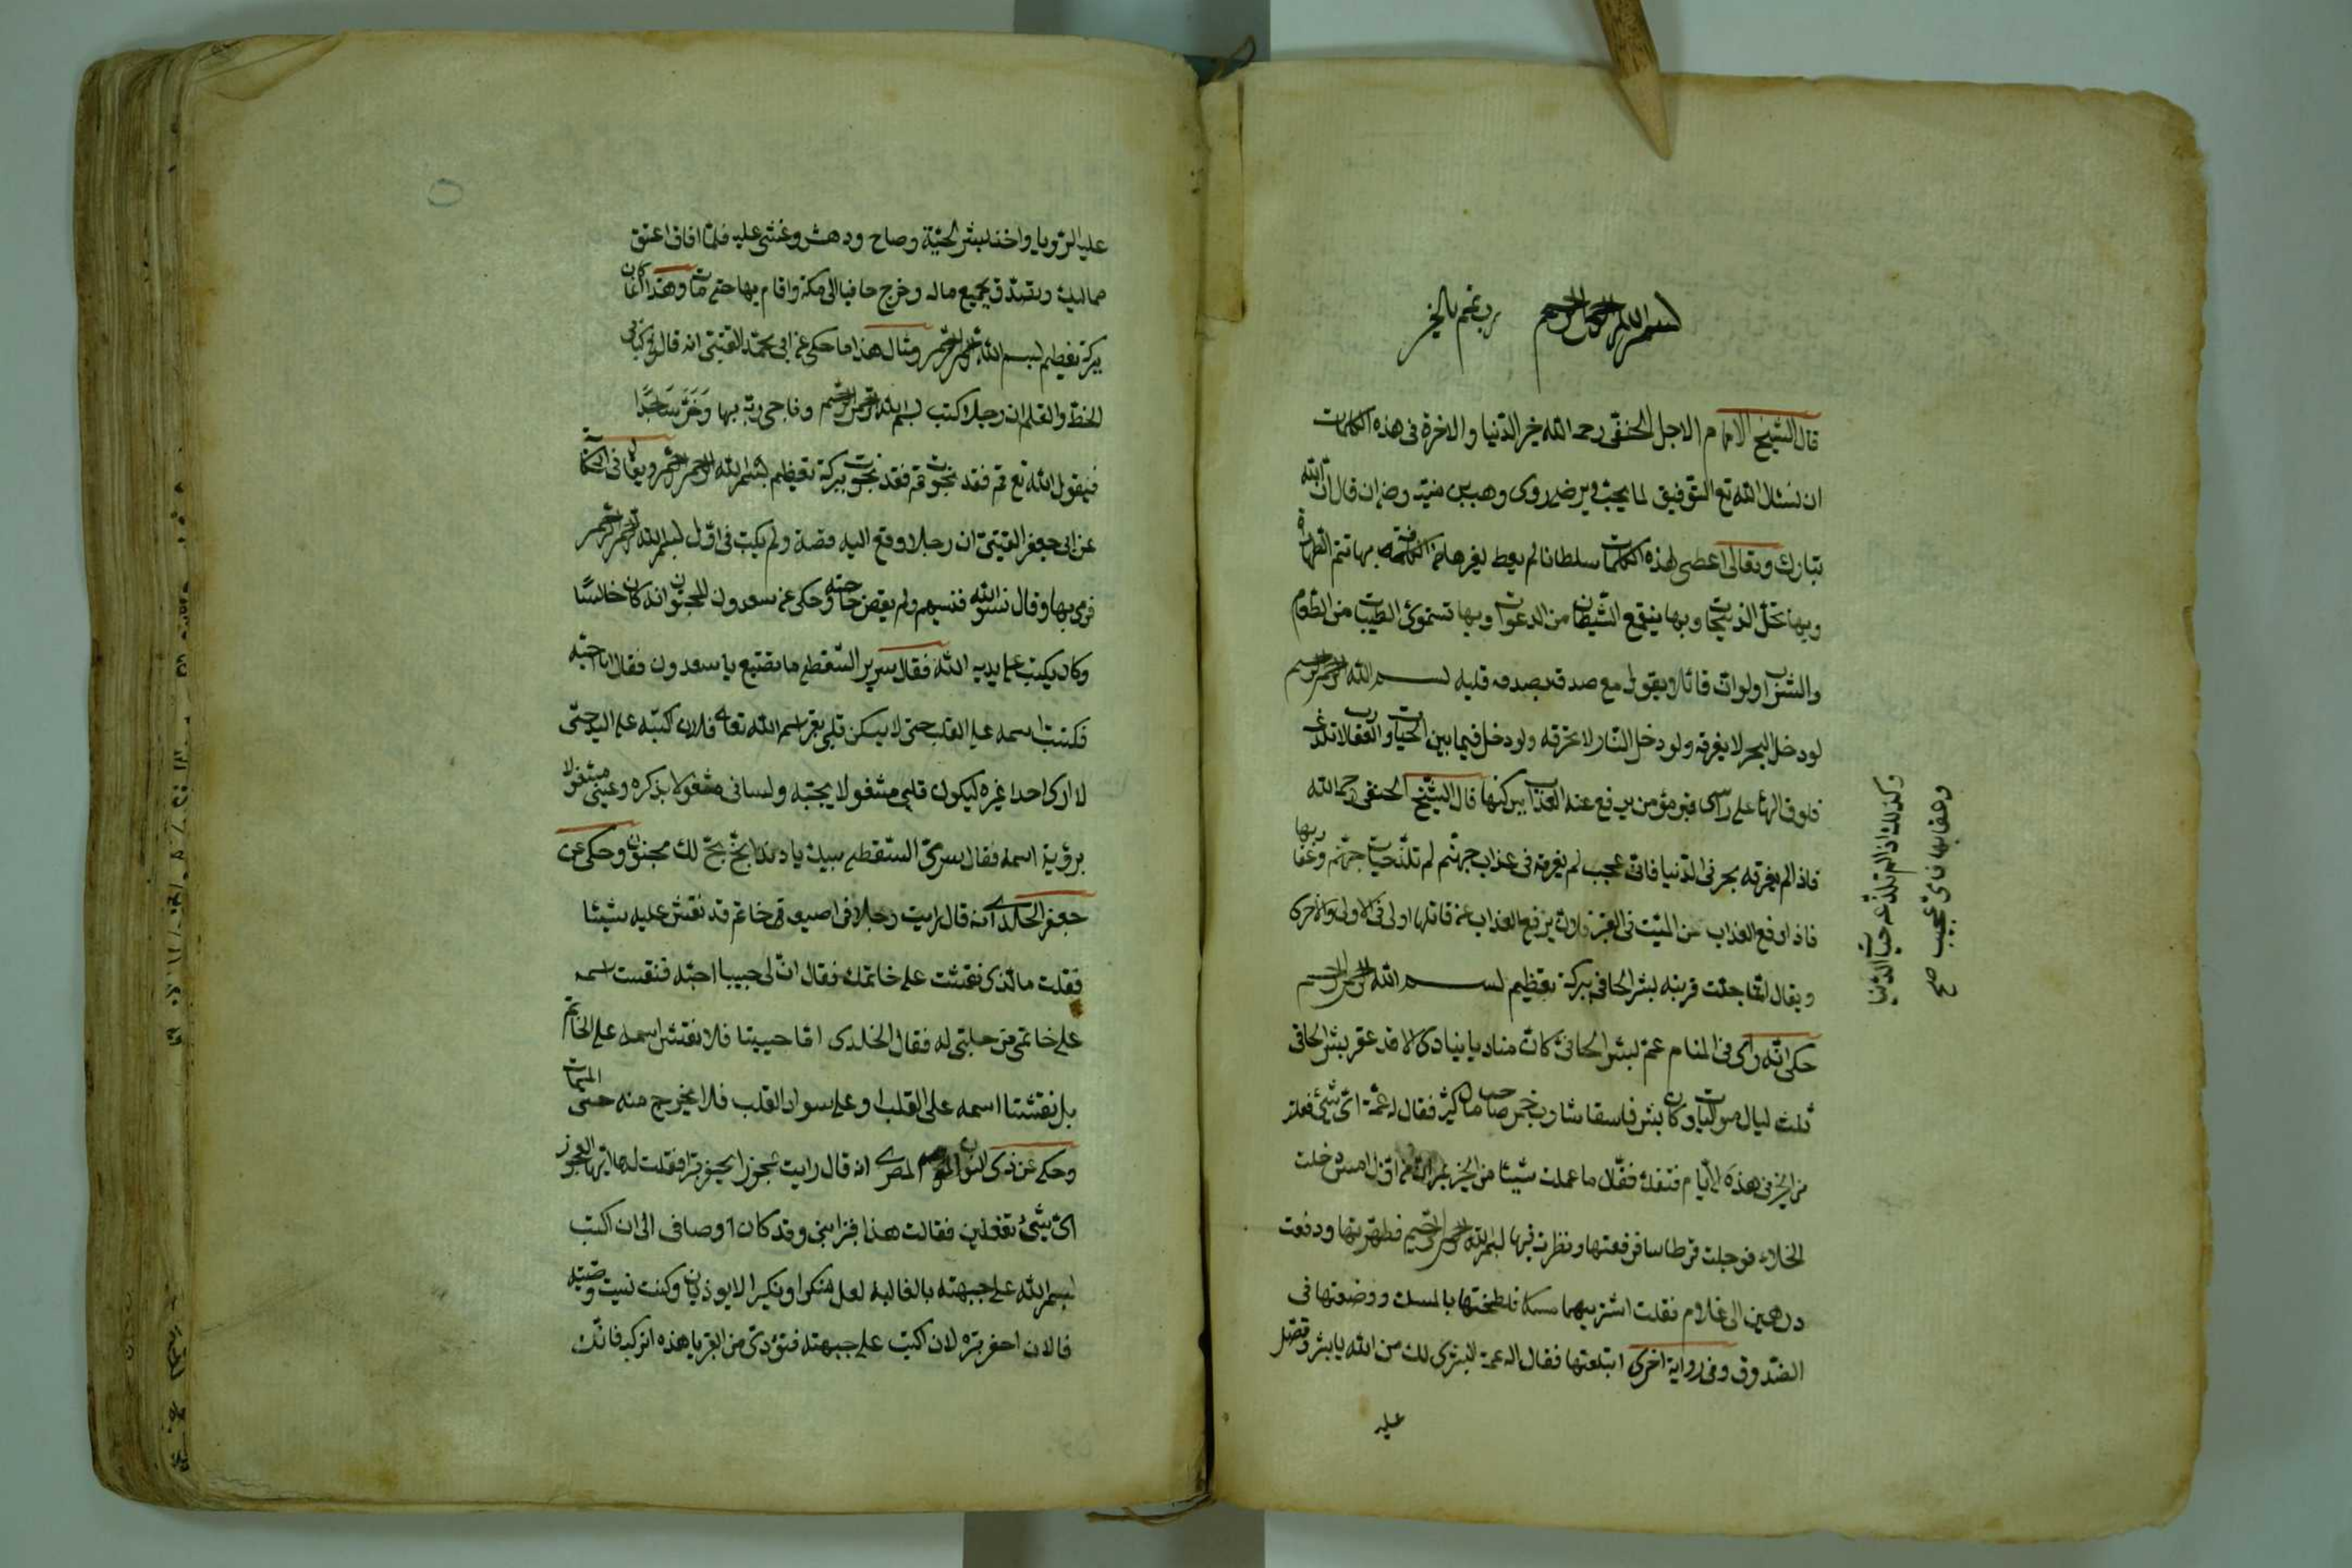 بسم الله الرحمن الرحيم رب تمم بالخير
قال الشيخ الامام الاجل الحنفى رحمه الله خير الدنيا والاخرة فى هذه الكلمات
ان نسئل الله تع التوفيق لما يحب ويرضى روى وهب بن منبه رضه ان قال ان الله
تبارك وتعالى اعطى لهذه الكلمات سلطانا لم يعط لغيرها بها تتم الطهارة
وبها تحل الذبيحات وبها ينقمع الشيطان من الدعوات وبها تستموئ الطيبات من الطعام
والشراب ولو ان قائلا يقول مع صدقه بصدق قلبه بسم الله الرحمن الرحيم
لو دخل البحر لا يغرقه ولو دخل النار لا تحرقه ولو دخل فيما بين الحيات والعقارب لا تلدغه
فلو قرائها على راس قبر مؤمن يرفع عنه العذاب ببركتها قال الشيخ الحنفى رحمه الله
فاذا لم يغرقه بحر فى الدنيا فاى عجب لم يغرقه فى عذاب جهنم لم تلدغه حيات جهنم وعقاربها
فاذا رفع العذاب عن الميت فى القبر فلان يرفع العذاب عن قائلها اولى فى الاولى والاخرى
ويقال لما جئت قربته بشر الحافى ببركة تعظيم بسم الله الرحمن الرحيم
حكى انه راى فى المنام عم لبشر الحافى كان مناديا ينادى الا قد غفر بشر الحافى
ثلث ليال متواليات وكان بشر فاسقا شارب خمر صاحب مال كثير فقال له عمه اى شئ فعلت
من الخير فى هذه الايام فتفكر فقال ما عملت شيئا من الخير غير انى اول امس دخلت
الخلاء فوجدت قرطاسا فرفعتها ونظرت فيها بسم الله الرحمن الرحيم فطهرتها ودفعت
درهمين الى غلام فقلت اشتر بهما مسكا فلطختها بالمسك ووضعتها فى
الصندوق وفى رواية اخرى ابتلعتها فقال له عمه البشرى لك من الله يا بشر وقص
عليه
وكذلك اذا لم تلدغه حيات الدنيا
وعقاربها فاى عجب صح
عليه الرؤيا واخذ لبشر الحية وصاح ودهش وغشى عليه فلما افاق اعتق
مماليكه وتصدق بجميع ماله وخرج حافيا الى مكة واقام بها حتى مات وهذا كان
ببركة تعظيم بسم الله الرحمن الرحيم ومثال هذا ما حكى عن ابى محمد القتيبى انه قال فى كتاب
الخط والقلم ان رجلا كتب بسم الله الرحمن الرحيم وناجى ربه بها وخر ساجدا
فيقول الله تع قم فقد نجوت قم فقد نجوت ببركة تعظيم بسم الله الرحمن الرحيم ويقال فى الحكايات
عن ابى جعفر القتيبى ان رجلا وقع اليه قصة ولم يكتب فى اول بسم الله الرحمن الرحيم
فرمى بها وقال نسوا الله فنسيهم ولم يقض حاجته وحكى عن سعدون المجنون انه كان جالسا
وكان يكتب على يديه الله فقال سرير السقطى ما تصنع يا سعدون فقال انا احبه
فكتبت اسمه على القلب حتى لا يسكن قلبى بغير اسم الله تعالى فالان اكتبه على اليد حتى
لا ارى احدا غيره ليكون قلبى مشغولا بحبه ولسانى مشغولا بذكره وعينى مشغولا
برؤية اسمه فقال سرى السقطى بخ بخ لك مجنون وحكى عن
جعفر الخلدى انه قال رايت رجلا فى اصبعه خاتم قد نقش عليه شيئا
فقلت ما الذى نقشت على خاتمك فقال ان لى حبيبا احبه فنقشت اسمه
على خاتمى من حبى له فقال الخلدى اما حبيبنا فلا نقش اسمه على الخاتم
بل نقشنا اسمه على القلب وعلى سواد القلب فلا يخرج منه حتى الممات
وحكى عن ذى النون المصرى انه قال رايت عجوزا يحفر قبرا فقلت لها ايتها العجوز
اى شئ تفعلين فقالت هذا قبر ابنى وقد كان اوصانى الى ان اكتب
بسم الله على جبهته بالغالية لعل منكرا ونكيرا لا يوذيان وكنت نسيت وصيته
فالان احفر قبره لان اكتب على جبهته فنودى من القبر يا هذه اتركيه فانك